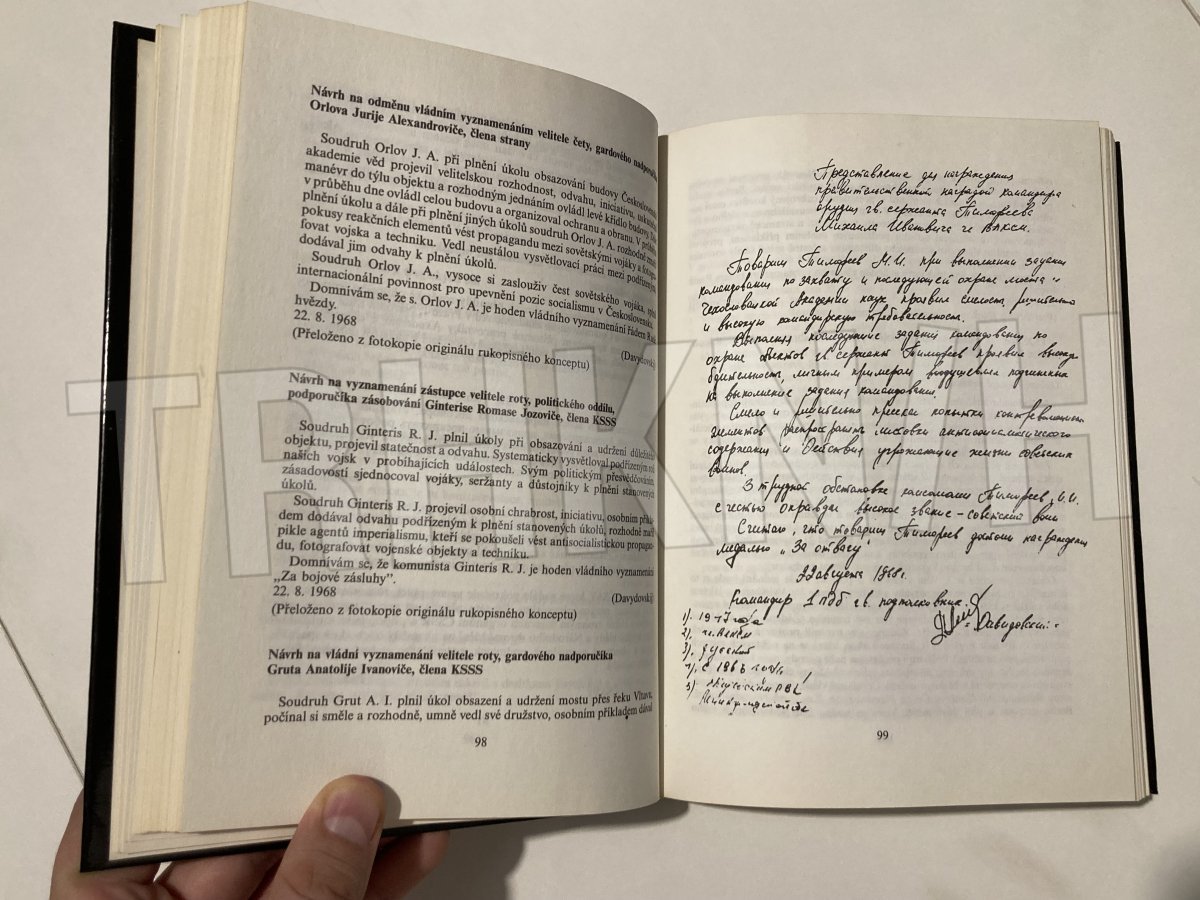 Návrh na odměnu vládním vyznamenáním velitele čety, gardového nadporučíka
Orlova Jurije Alexandroviče, člena strany
Soudruh Orlov J. A. při plnění úkolu obsazování budovy Československé
akademie věd projevil velitelskou rozhodnost, odvahu, iniciativu,
manévr do týlu objektu a rozhodným jednáním ovládl levé křídlo budovy.
v průběhu dne ovládl celou budovu a organizoval ochranu a obranu. V
plnění úkolu a dále při plnění jiných úkolů soudruh Orlov J. A. rozhodně
pokusy reakčních elementů vést propagandu mezi sovětskými vojáky a
fovat vojska a techniku. Vedl neustálou vysvětlovací práci mezi
dodával jim odvahy k plnění úkolů.
Soudruh Orlov J. A., vysoce si zasloužív čest sovětského vojáka,
internacionální povinnost pro upevnění pozic socialismu v Československu,
Domnívám se, že s. Orlov J. A. je hoden vládního vyznamenání řádem
hvězdy.
22. 8. 1968
(Davydovský)
(Přeloženo z fotokopie originálu rukopisného konceptu)
Návrh na vyznamenání zástupce velitele roty, politického oddílu,
podporučíka zásobování Ginterise Romase Jozoviče, člena KSSS
Soudruh Ginteris R. J. plnil úkoly při obsazování a udržení
objektu, projevil statečnost a odvahu. Systematicky vysvětloval podřízeným
našich vojsk v probíhajících událostech. Svým politickým přesvědčováním,
zásadovostí sjednocoval vojáky, seržanty a důstojníky k plnění stanovených
úkolů.
Soudruh Ginteris R. J. projevil osobní chrabrost, iniciativu, osobním
dem dodával odvahu podřízeným k plnění stanovených úkolů, rozhodně
pikle agentů imperialismu, kteří se pokoušeli vést antisocialistickou propagan-
du, fotografovat vojenské objekty a techniku.
Domnívám se, že komunista Ginteris R. J. je hoden vládního vyznamenání
„Za bojové zásluhy”.
22. 8. 1968
(Davydovský)
(Přeloženo z fotokopie originálu rukopisného konceptu)
Návrh na vládní vyznamenání velitele roty, gardového nadporučíka
Gruta Anatolije Ivanoviče, člena KSSS
Soudruh Grut A. I. plnil úkol obsazení a udržení mostu přes řeku Vltavu,
počínal si směle a rozhodně, umně vedl své družstvo, osobním příkladem dával
98
Представление для награждения
правительственной наградой командира
орудия гв. сержанта Тимофеева
Михаила Ивановича чл ВЛКСМ.
Товарищ Тимофеев М.И. при выполнении задачи
командования по захвату и последующей охране моста
Чехословацкой Академии наук проявил смелость, решительно
и высокую командирскую требовательность.
Выполняя последующие задания командования по
охране объектов гв. сержант Тимофеев проявил высокую
бдительность личным примером воодушевлял подчиненных
на выполнение задания командования.
Смело и решительно пресекал попытки контрреволюцион
элементов распространять листовки антисоциалистического
содержания и действия угрожающие жизни советских
воинов.
В трудной обстановке комсомолец Тимофеев М.И.
с честью оправдал высокое звание - советский воин
Считаю, что товарищ Тимофеев достоин награждения
медалью „За отвагу"
22 августа 1968г.
Командир 1 пдб гв. подполковник
Давидовский
1). 1947 года
2). чл. ВЛКСМ
3). русский
4). с 1966 года
5)
99
TRHKNIH